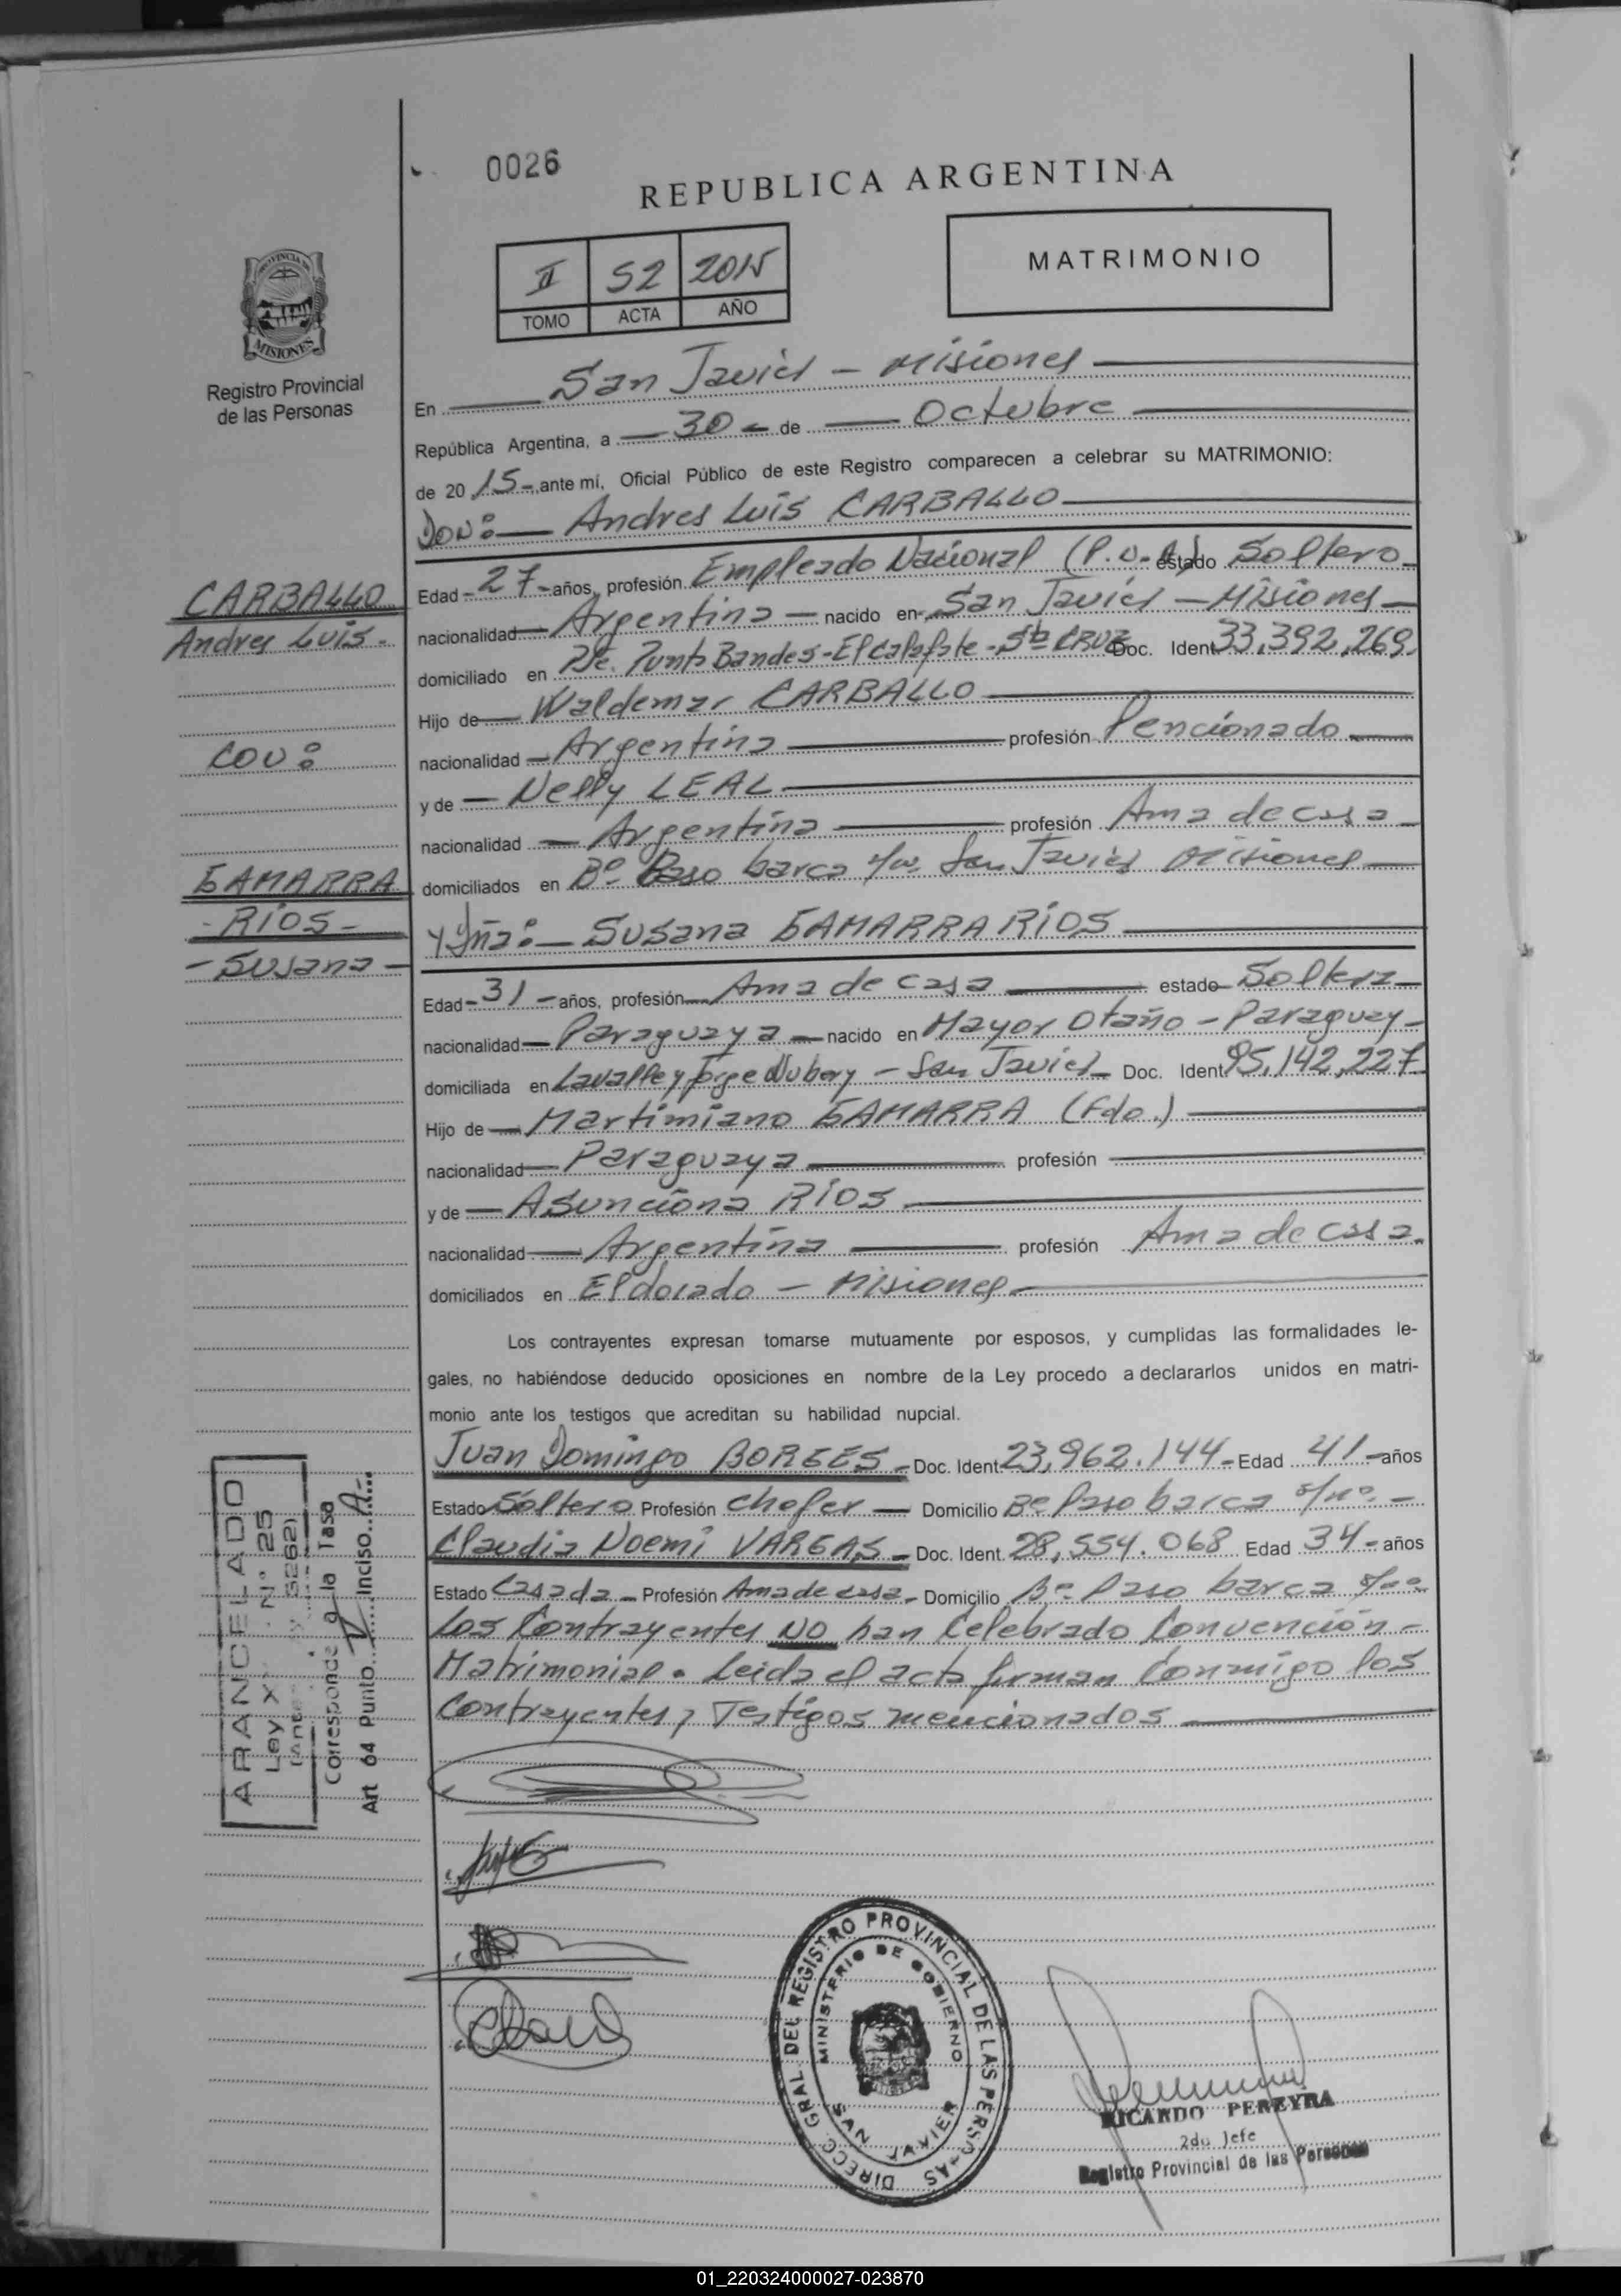 0026
REPUBLICA ARGENTINA
II 52 2015
TOMO ACTA AÑO
MATRIMONIO
PROVINCIA DE
MISIONES
Registro Provincial
de las Personas
En San Javier - Misiones
República Argentina, a 30 - de Octubre
de 20 15 - ante mí, Oficial Público de este Registro comparecen a celebrar su MATRIMONIO:
Don: Andres Luis CARBALLO
CARBALLO
Andres Luis -
Edad - 27 - años, profesión Empleado Nacional (P.U.A) estado Soltero
nacionalidad Argentina nacido en San Javier - Misiones
domiciliado en Pte. Punta Bandes - El Calafate - Sta CRUZ Doc. Ident 33,392,269
Hijo de Waldemar CARBALLO
nacionalidad Argentina profesión Pencionado
con:
y de Nelly LEAL
nacionalidad Argentina profesión Ama de casa
domiciliados en Bº Paso barca s/nº San Javier Misiones
GAMARRA
- RIOS -
- Susana -
y Sña: Susana GAMARRA RIOS
Edad - 31 - años, profesión Ama de casa estado Soltera
nacionalidad Paraguaya nacido en Mayor Otaño - Paraguay -
domiciliada en Lavalle y Jorge Nubery - San Javier Doc. Ident 95,142,227
Hijo de Martimiano GAMARRA (Fdo.)
nacionalidad Paraguaya profesión
y de Asunciona RIOS
nacionalidad Argentina profesión Ama de casa.
domiciliados en Eldorado - Misiones
Los contrayentes expresan tomarse mutuamente por esposos, y cumplidas las formalidades le-
gales, no habiéndose deducido oposiciones en nombre de la Ley procedo a declararlos unidos en matri-
monio ante los testigos que acreditan su habilidad nupcial.
Juan Domingo BORGES - Doc. Ident 23,962.144 - Edad 41 - años
Estado Soltero Profesión Chofer - Domicilio Bº Paso barca s/nº. -
Claudia Noemi VARGAS - Doc. Ident. 28,554.068 Edad 34 - años
Estado Casada - Profesión Ama de casa - Domicilio Bº Paso barca s/nº
Los Contrayentes NO han Celebrado Convención -
Matrimonial. Leida el acta firman Conmigo los
Contrayentes y Testigos mencionados
ARANCELADO
Ley X Nº 25
5262)
Corresponde a la Tasa
Art 64 Punto V Inciso A-
DIRECC. GRAL. DEL REGISTRO PROVINCIAL DE LAS PERSONAS
MINISTERIO DE GOBIERNO
SAN JAVIER
RICARDO PEREYRA
2do Jefe
Registro Provincial de las Personas
01_220324000027-023870